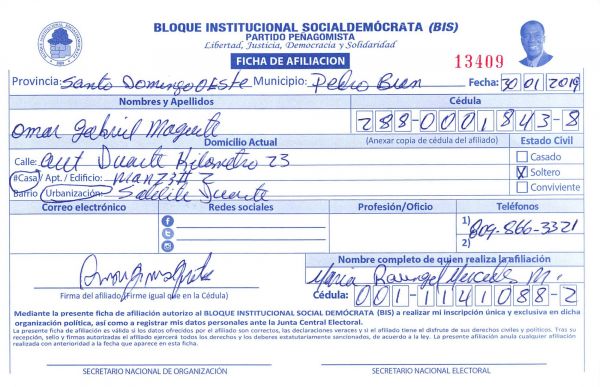 BLOQUE INSTITUCIONAL SOCIALDEMÓCRATA (BIS)
PARTIDO PEÑAGOMISTA
Libertad, Justicia, Democracia y Solidaridad
FICHA DE AFILIACION
13409
Provincia: Santo Domingo OESTE Municipio: Pedro Bran Fecha: 30 01 2019
Nombres y Apellidos Cédula
Omar Gabriel 288-0001843-8
Domicilio Actual (Anexar copia de cédula del afiliado) Estado Civil
Calle: Aut Duarte Kilometro 23 Casado
#Casa / Apt. / Edificio: X Soltero
Barrio / Urbanización: Duarte Conviviente
Correo electrónico Redes sociales Profesión/Oficio Teléfonos
1) 809-866-3321
2)
Nombre completo de quien realiza la afiliación
Maria Rangel Mercedes M.
Firma del afiliado/Firme igual que en la Cédula) Cédula: 001-1141088-2
Mediante la presente ficha de afiliación autorizo al BLOQUE INSTITUCIONAL SOCIAL DEMÓCRATA (BIS) a realizar mi inscripción única y exclusiva en dicha
organización política, así como a registrar mis datos personales ante la Junta Central Electoral.
La presente ficha de afiliación es válida si los datos ofrecidos por el afiliado son correctos, las declaraciones veraces y si el afiliado tiene el disfrute de sus derechos civiles y políticos. Tras su
recepción, sello y firmas autorizadas el afiliado ejercerá todos los derechos y los deberes estatutariamente sancionados, de acuerdo a la ley. La presente afiliación anula cualquier afiliación
realizada con anterioridad a la fecha que aparece en esta ficha.
SECRETARIO NACIONAL DE ORGANIZACIÓN SECRETARIO NACIONAL ELECTORAL